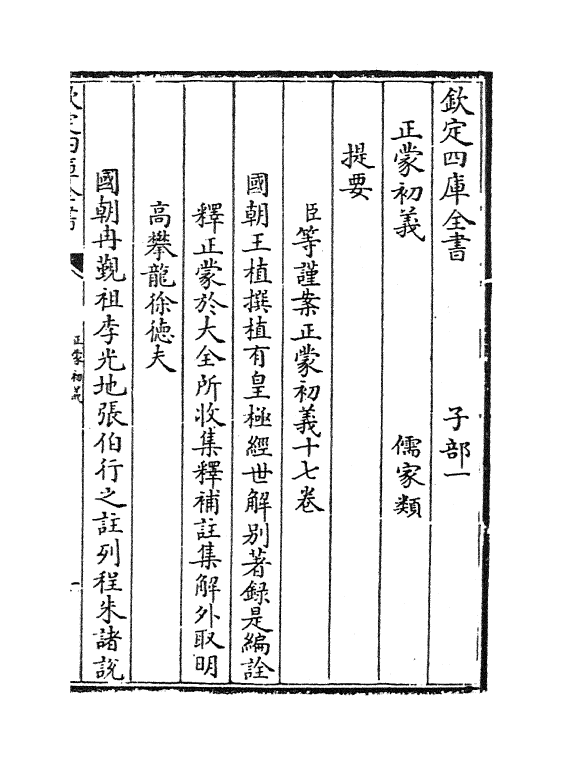 欽定四庫全書　子部一
正蒙初義　儒家類
提要
臣等謹案正蒙初義十七卷
國朝王植撰植有皇極經世解别著録是編詮
釋正蒙於大全所收集釋補註集解外取明
高攀龍徐徳夫
國朝冉覲祖李光地張伯行之註列程朱諸說
欽定四庫全書
正蒙初義
一